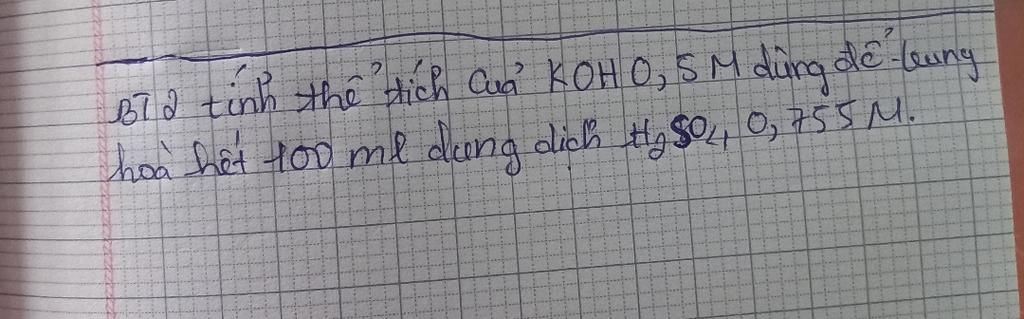 BT2 tính thể tích của KOH 0,5M dùng để trung
hoà hết 100 ml dung dịch H2SO4 0,755M.